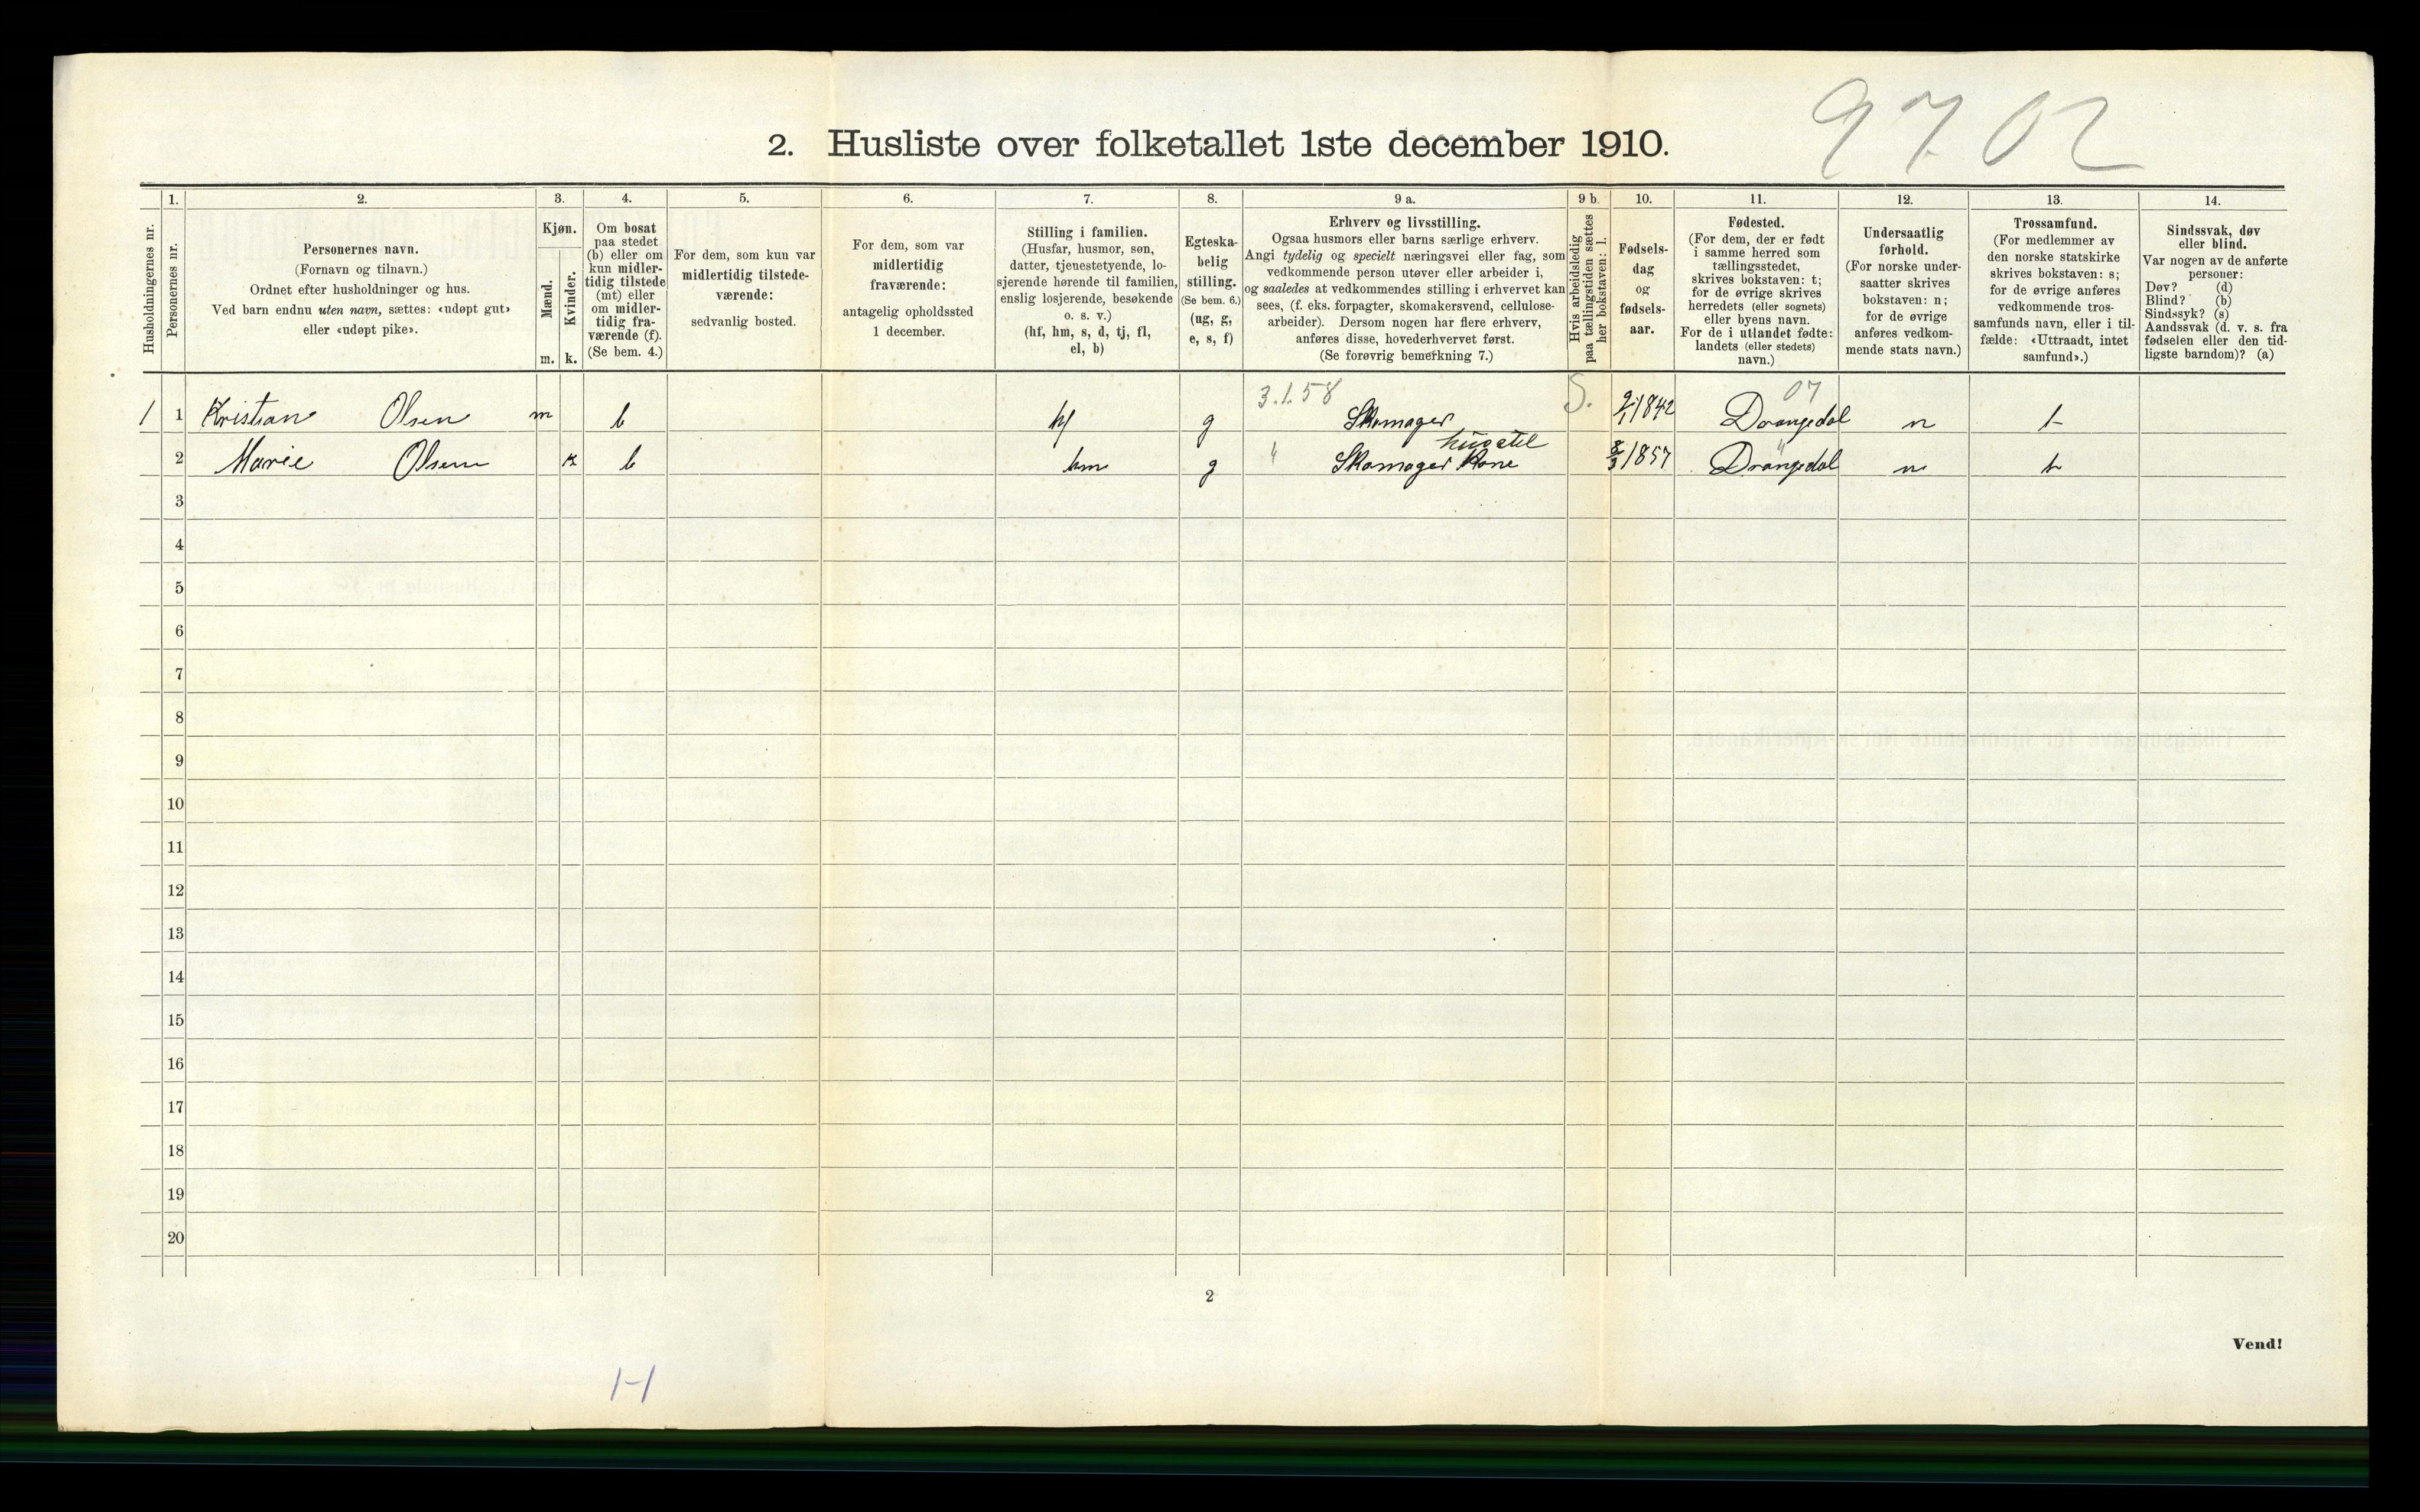 9702
2. Husliste over folketallet 1ste december 1910.
Husholdningernes nr.
1.
Personernes nr.
2.
Personernes navn.
(Fornavn og tilnavn.)
Ordnet efter husholdninger og hus.
Ved barn endnu uten navn, sættes: «udøpt gut»
eller «udøpt pike».
3.
Kjøn.
Mænd.
Kvinder.
m. k.
4.
Om bosat
paa stedet
(b) eller om
kun midler-
tidig tilstede
(mt) eller
om midler-
tidig fra-
værende (f).
(Se bem. 4.)
5.
For dem, som kun var
midlertidig tilstede-
værende:
sedvanlig bosted.
6.
For dem, som var
midlertidig
fraværende:
antagelig opholdssted
1 december.
7.
Stilling i familien.
(Husfar, husmor, søn,
datter, tjenestetyende, lo-
sjerende hørende til familien,
enslig losjerende, besøkende
o. s. v.)
(hf, hm, s, d, tj, fl,
el, b)
8.
Egteska-
belig
stilling.
(Se bem. 6.)
(ug, g,
e, s, f)
9 a.
Erhverv og livsstilling.
Ogsaa husmors eller barns særlige erhverv.
Angi tydelig og specielt næringsvei eller fag, som
vedkommende person utøver eller arbeider i,
og saaledes at vedkommendes stilling i erhvervet kan
sees, (f. eks. forpagter, skomakersvend, cellulose-
arbeider). Dersom nogen har flere erhverv,
anføres disse, hovederhvervet først.
(Se forøvrig bemerkning 7.)
9 b.
Hvis arbeidsledig
paa tællingstiden sættes
her bokstaven: l.
10.
Fødsels-
dag
og
fødsels-
aar.
11.
Fødested.
(For dem, der er født
i samme herred som
tællingsstedet,
skrives bokstaven: t;
for de øvrige skrives
herredets (eller sognets)
eller byens navn.
For de i utlandet fødte:
landets (eller stedets)
navn.)
12.
Undersaatlig
forhold.
(For norske under-
saatter skrives
bokstaven: n;
for de øvrige
anføres vedkom-
mende stats navn.)
13.
Trossamfund.
(For medlemmer av
den norske statskirke
skrives bokstaven: s;
for de øvrige anføres
vedkommende tros-
samfunds navn, eller i til-
fælde: «Uttraadt, intet
samfund».)
14.
Sindssvak, døv
eller blind.
Var nogen av de anførte
personer:
Døv? (d)
Blind? (b)
Sindssyk? (s)
Aandssvak (d. v. s. fra
fødselen eller den tid-
ligste barndom)? (a)
3.1.58 S. 07
1 1 Kristian Olsen m b hf g Skomager 1842 Drangedal n
husstel
2 Marie Olsen k b hm g " Skomager Kone 8/3 1857 Drangedal n
3
4
5
6
7
8
9
10
11
12
13
14
15
16
17
18
19
20
2
Vend!